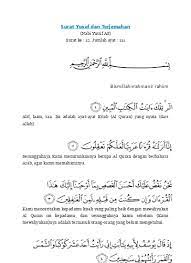 Surat Yusuf dan Terjemahan
(Nabi Yusuf AS)
Surat ke : 12. Jumlah ayat : 111
بِسْمِ اللَّهِ الرَّحْمَٰنِ الرَّحِيمِ
الر تِلْكَ آيَاتُ الْكِتَابِ الْمُبِينِ
Alif, laam, raa. Ini adalah ayat-ayat Kitab (Al Quran) yang nyata (dari
Allah)
إِنَّا أَنْزَلْنَاهُ قُرْآنًا عَرَبِيًّا لَعَلَّكُمْ تَعْقِلُونَ
Sesungguhnya Kami menurunkannya berupa Al Quran dengan berbahasa
Arab, agar kamu memahaminya.
نَحْنُ نَقُصُّ عَلَيْكَ أَحْسَنَ الْقَصَصِ بِمَا أَوْحَيْنَا إِلَيْكَ هَٰذَا
الْقُرْآنَ وَإِنْ كُنْتَ مِنْ قَبْلِهِ لَمِنَ الْغَافِلِينَ
Kami menceritakan kepadamu kisah yang paling baik dengan mewahyukan
Al Quran ini kepadamu, dan sesungguhnya kamu sebelum (Kami